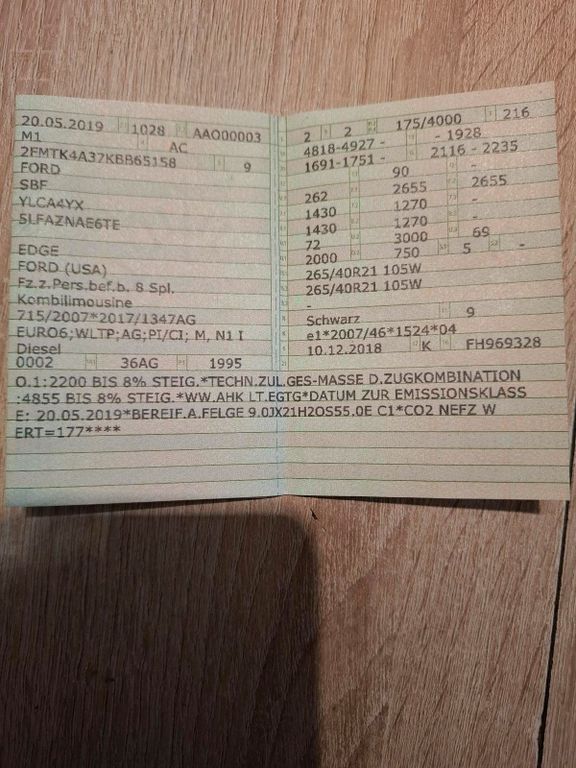 20.05.2019 1028 AAO00003
M1 AC
2FMTK4A37KBB65158 9
FORD
SBF
YLCA4YX
5LFAZNAE6TE
EDGE
FORD (USA)
Fz.z.Pers.bef.b. 8 Spl.
Kombilimousine
715/2007*2017/1347AG
EURO6;WLTP;AG;PI/CI; M, N1 I
Diesel
0002 36AG 1995
2 2 175/4000 216
4818-4927 - - 1928
1691-1751 - 2116 - 2235
90 -
262 2655 2655
1430 1270 -
1430 1270 -
72 3000 69
2000 750 5 -
265/40R21 105W
265/40R21 105W
-
Schwarz 9
e1*2007/46*1524*04
10.12.2018 K FH969328
O.1:2200 BIS 8% STEIG.*TECHN.ZUL.GES-MASSE D.ZUGKOMBINATION
:4855 BIS 8% STEIG.*WW.AHK LT.EGTG*DATUM ZUR EMISSIONSKLASS
E: 20.05.2019*BEREIF.A.FELGE 9.0JX21H2OS55,0E C1*CO2 NEFZ W
ERT=177****